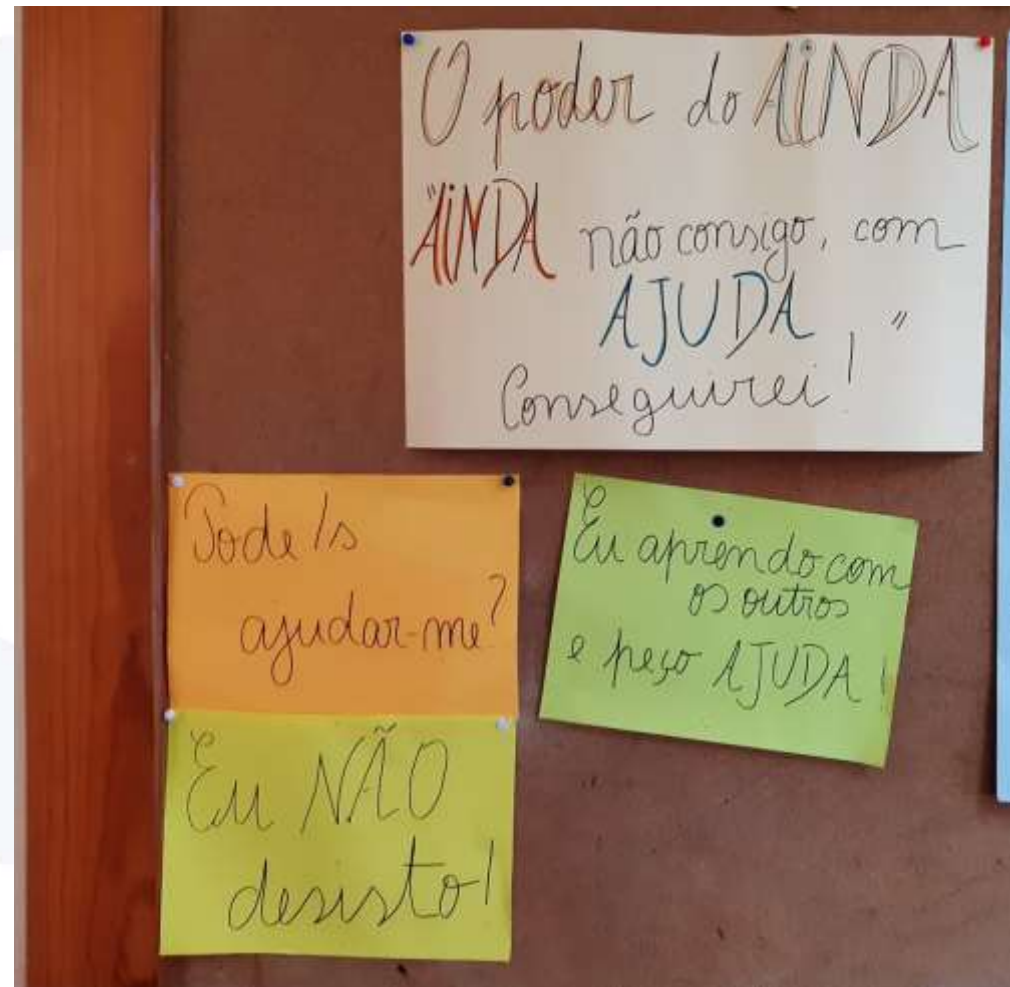 O poder do AINDA
"AINDA não consigo, com
AJUDA
Conseguirei!"
Pode/s
ajudar-me?
Eu aprendo com
os outros
e peço AJUDA!
Eu NÃO
desisto!